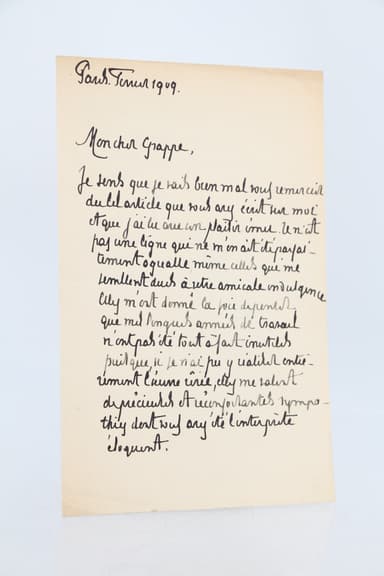 Paris. Fevrier 1909.
Mon cher Grappe,
Je sens que je vais bien mal vous remercier
du bel article que vous avez écrit sur moi
et que j'ai lu avec un plaisir ému. Ce n'est
pas une ligne qui ne m'en ait été parfai-
tement agréable même celles qui me
semblent dues à votre amicale indulgence
Elles m'ont donné la joie de penser
que mes longues années de travail
n'ont pas été tout à fait inutiles
puisque, si je n'ai pu y réaliser entiè-
rement l'œuvre rêvée, elles me valent
de précieuses et réconfortantes sympa-
thies dont vous avez été l'interprète
éloquent.